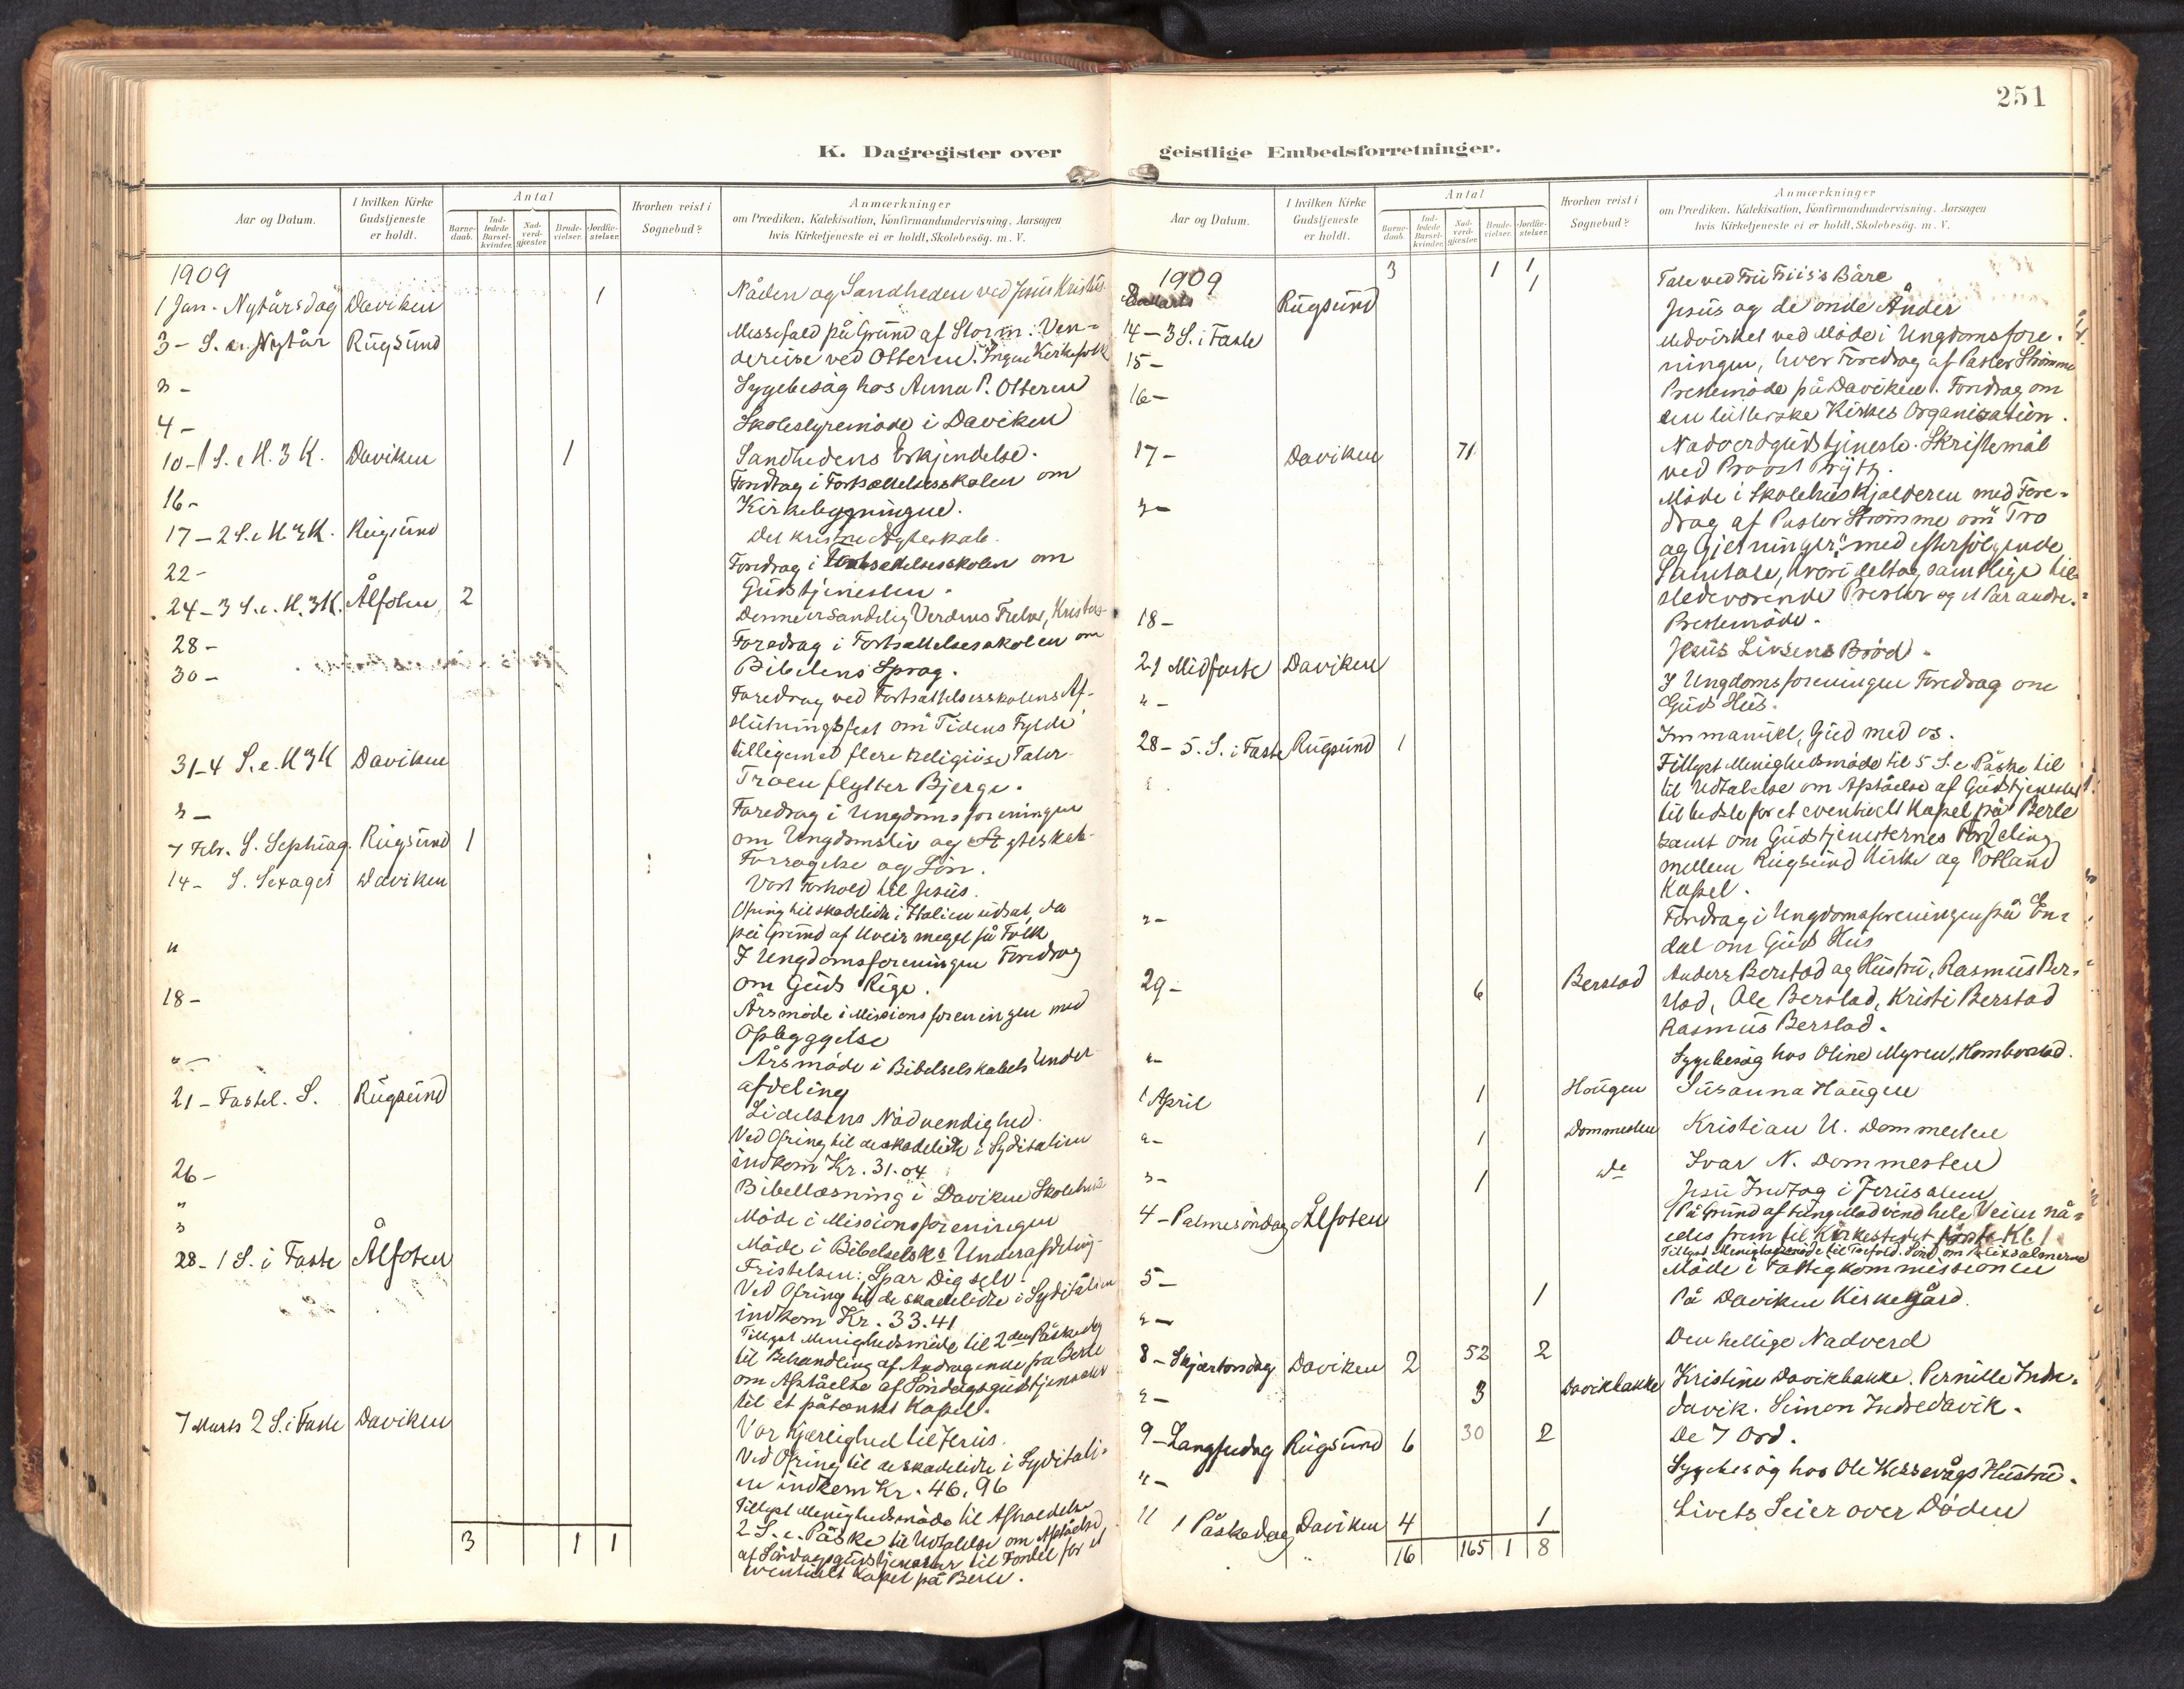 251
K. Dagregister over
Aar og Datum.
I hvilken Kirke
Gudstjeneste
er holdt.
Antal
Barne-
daab.
Ind-
ledede
Barsel-
kvinder.
Nad-
verd-
gjæster.
Brude-
vielser.
Jordfæ-
stelser.
Hvorhen reist i
Sognebud?
Anmærkninger
om Prædiken, Katekisation, Konfirmandundervisning, Aarsagen
hvis Kirketjeneste ei er holdt, Skolebesög. m. V.
1909
1 Jan. Nytårsdag Daviken 1 Nåden og Sandheden ved Jesus Kristus
3 - S. e. Nytår Rugsund Messefald på Grund af Storm. Ven=
dereise ved Otteren. Ingen Kirkefolk
" - Sygebesög hos Anna P. Otteren
4 - Skolestyremöde i Daviken
10 - 1 S. e. H. 3 K. Daviken 1 Sandhedens Erkjendelse.
16 - Foredrag i Fortsættelsesskolen om
Kirkebygningne.
17 - 2 S. e. H 3 K. Rugsund Det kristne Ægteskab.
22 - Foredrag i Fortsættelsesskolen om
Gudstjenesten.
24 - 3 S. e. H. 3 K. Ålfoten 2 Denne er sandelig Verdens Frelser, Kristus
28 - Foredrag i Fortsættelsesskolen om
Bibelens Sprog.
30 - Foredrag ved Fortsættelsesskolens Af-
slutningsfest om "Tidens Fylde"
tilligemed flere religiöse Taler.
31 - 4 S. e. H 3 K Daviken Troen flytter Bjerge.
" - Foredrag i Ungdomsforeningen
om Ungdomsliv og Ægteskab.
7 Febr. S. Septuag. Rugsund 1 Forsagelse og Lön.
14 - S. Sexages Daviken Vort Forhold til Jesus.
Ofring til skadelidte i Italien udsat, da
på Grund af Uveir meget få Folk
" I Ungdomsforeningen Foredrag
om Guds Rige.
18 - Årsmöde i Missionsforeningen med
Opbyggelse
" - Årsmöde i Bibelselskabets Under
afdeling
21 - Fastel. S. Rugsund Lidelsens Nödvendighed.
Ved Ofring til de skadelidte i Syditalien
indkom Kr. 31.04
26 - Bibellæsning i Daviken Skolehus
" Möde i Missionsforeningen
" Möde i Bibelselsks Underafdeling
28 - 1 S. i Faste Ålfoten Fristelsen: Spar Dig selv!
Ved Ofring til de skadelidte i Syditalien
indkom Kr. 33.41
Tillyst Menighedsmöde til 2den Påskedag
til Behandling af Andragende fra Berle
om Afståelse af Söndagsgudstjenester
til et påtænkt Kapel.
7 Marts 2 S. i Faste Daviken Vor Kjærlighed til Jesus.
Ved Ofring til de skadelidte i Syditali-
en indkom Kr. 46,96
Tillyst Menighedsmöde til Afholdelse
2 S. e. Påske til Udtalelse om Afståelse
af Söndagsgudstjenester til Fordel for et
eventuelt Kapel på Berle.
3 1 1
geistlige Embedsforretninger.
Aar og Datum.
I hvilken Kirke
Gudstjeneste
er holdt.
Antal
Barne-
daab.
Ind-
ledede
Barsel-
kvinder.
Nad-
verd-
gjæster.
Brude-
vielser.
Jordfæ-
stelser.
Hvorhen reist i
Sognebud?
Anmærkninger
om Prædiken, Katekisation, Konfirmandundervisning, Aarsagen
hvis Kirketjeneste ei er holdt, Skolebesög. m. V.
3 1 1
1909 1 Tale ved Fru Friis's Båre
Rugsund Jesus og de onde Ånder
14 - 3 S. i Faste Medvirket ved Möde i Ungdomsfore-
15 - ningen, hvor Foredrag af Pastor Strömme
16 - Prestemöde på Daviken. Foredrag om
den lutherske Kirkes Organisation.
17 - Daviken 71 Nadverdgudstjeneste. Skriftemål
ved Provst Prytz.
" - Möde i Skolehuskjælderen med Fore-
drag af Pastor Strömme om "Tro
og Gjerninger" med efterfölgende
Samtale, hvori deltog samtlige til-
stedeværende Prester og et Par andre.
18 - Prestemöde.
21 Midfaste Daviken Jesus Livsens Bröd.
" - I Ungdomsforeningen Foredrag om
Guds Hus.
28 - 5. S. i Faste Rugsund 1 Immanuel, Gud med os.
Tillyst Menighedsmöde til 5 S. e. Påske til
til Udtalelse om Afståelse af Gudstjenester
til bedste for et eventuelt Kapel på Berle
samt om Gudstjenesternes Fordeling
mellem Rugsund Kirke og Totland
Kapel.
" - Foredrag i Ungdomsforeningen på En-
dal om Guds Hus
29 - 6 Berstad Anders Berstad og Hustru, Rasmus Ber-
stad, Ole Berstad, Kristi Berstad
Rasmus Berstad.
" - Sygebesög hos Oline Myren, Hornborstad.
1 April 1 Hougen Susanna Haugen
" - 1 Dommesten Kristian U. Dommesten
" - 1 do Ivar N. Dommesten
4 - Palmesöndag Ålfoten Jesu Indtog i Jerusalem
(På Grund af tung Modvind hele Veien nå-
edes frem til Kirkestedet först Kl. 1
5 - Möde i Fattigkommissionen
" - 1 På Daviken Kirkegård.
8 - Skjærtorsdag Daviken 2 52 2 Den hellige Nadverd
" - 3 Davikbakke Kristine Davikbakke. Pernille Indre-
davik. Simon Indredavik.
9 - Langfredag Rugsund 6 30 2 De 7 Ord.
" - Sygebesög hos Ole Hessevågs Hustru.
11 1 Påskedag Daviken 4 1 Livets Seier over Döden
16 165 1 8